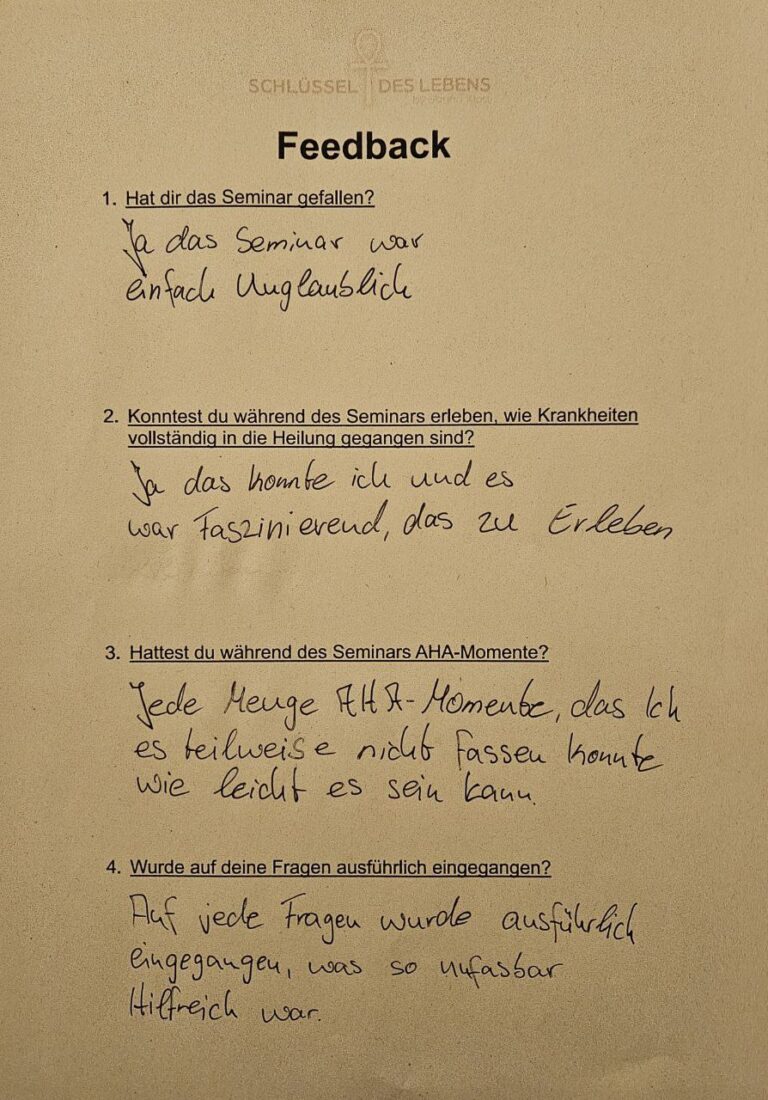 SCHLÜSSEL DES LEBENS
Feedback
1. Hat dir das Seminar gefallen?
Ja das Seminar war
einfach Unglaublich
2. Konntest du während des Seminars erleben, wie Krankheiten
vollständig in die Heilung gegangen sind?
Ja das konnte ich und es
war Faszinierend, das zu Erleben
3. Hattest du während des Seminars AHA-Momente?
Jede Menge AHA-Momente, das Ich
es teilweise nicht Fassen konnte
wie leicht es sein kann.
4. Wurde auf deine Fragen ausführlich eingegangen?
Auf jede Fragen wurde ausführlich
eingegangen, was so unfasbar
Hilfreich war.